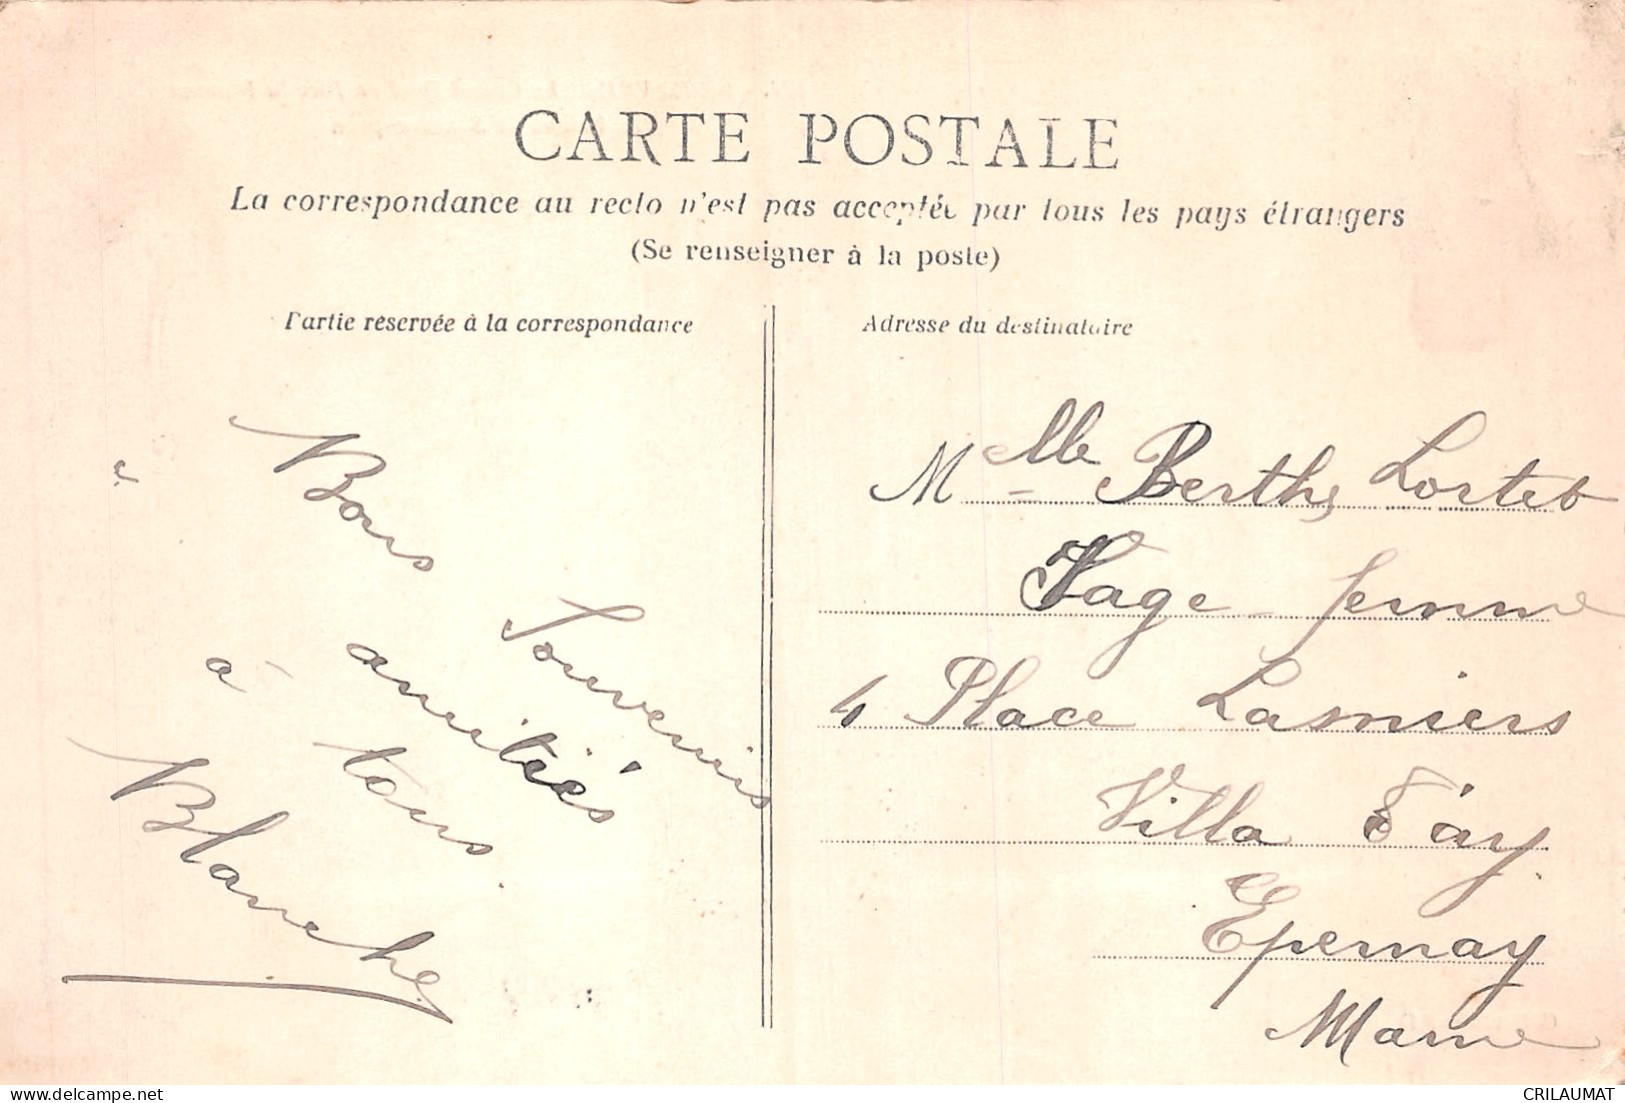 CARTE POSTALE
La correspondance au recto n'est pas acceptée par tous les pays étrangers
(Se renseigner à la poste)
Partie réservée à la correspondance
Bons Souvenirs
amitiés
à tous
Blanche
Adresse du destinataire
Melle Berthe
Sage femme
4 Place
Villa
Epernay
Marne
CRILAUMAT